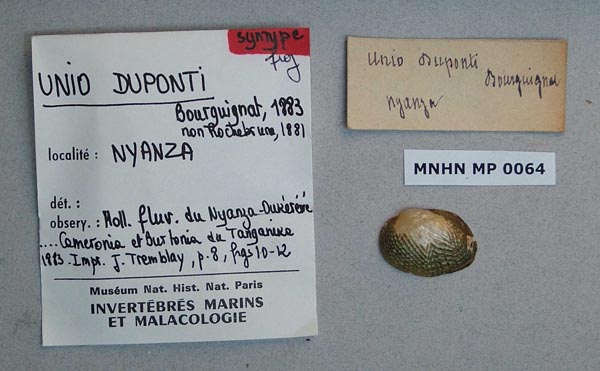 syntype
fig
UNIO DUPONTI
Bourguignat, 1883
non Rochebrune, 1881
localité : NYANZA
dét. :
observ. : Moll. fluv. du Nyanza-Oukéréwé
.... Cameronia et Burtonia du Tanganika
1883. Impr. J. Tremblay, p. 8, figs 10-12
Muséum Nat. Hist. Nat. Paris
INVERTÉBRÉS MARINS
ET MALACOLOGIE
Unio Duponti
Bourguignat
Nyanza
MNHN MP 0064